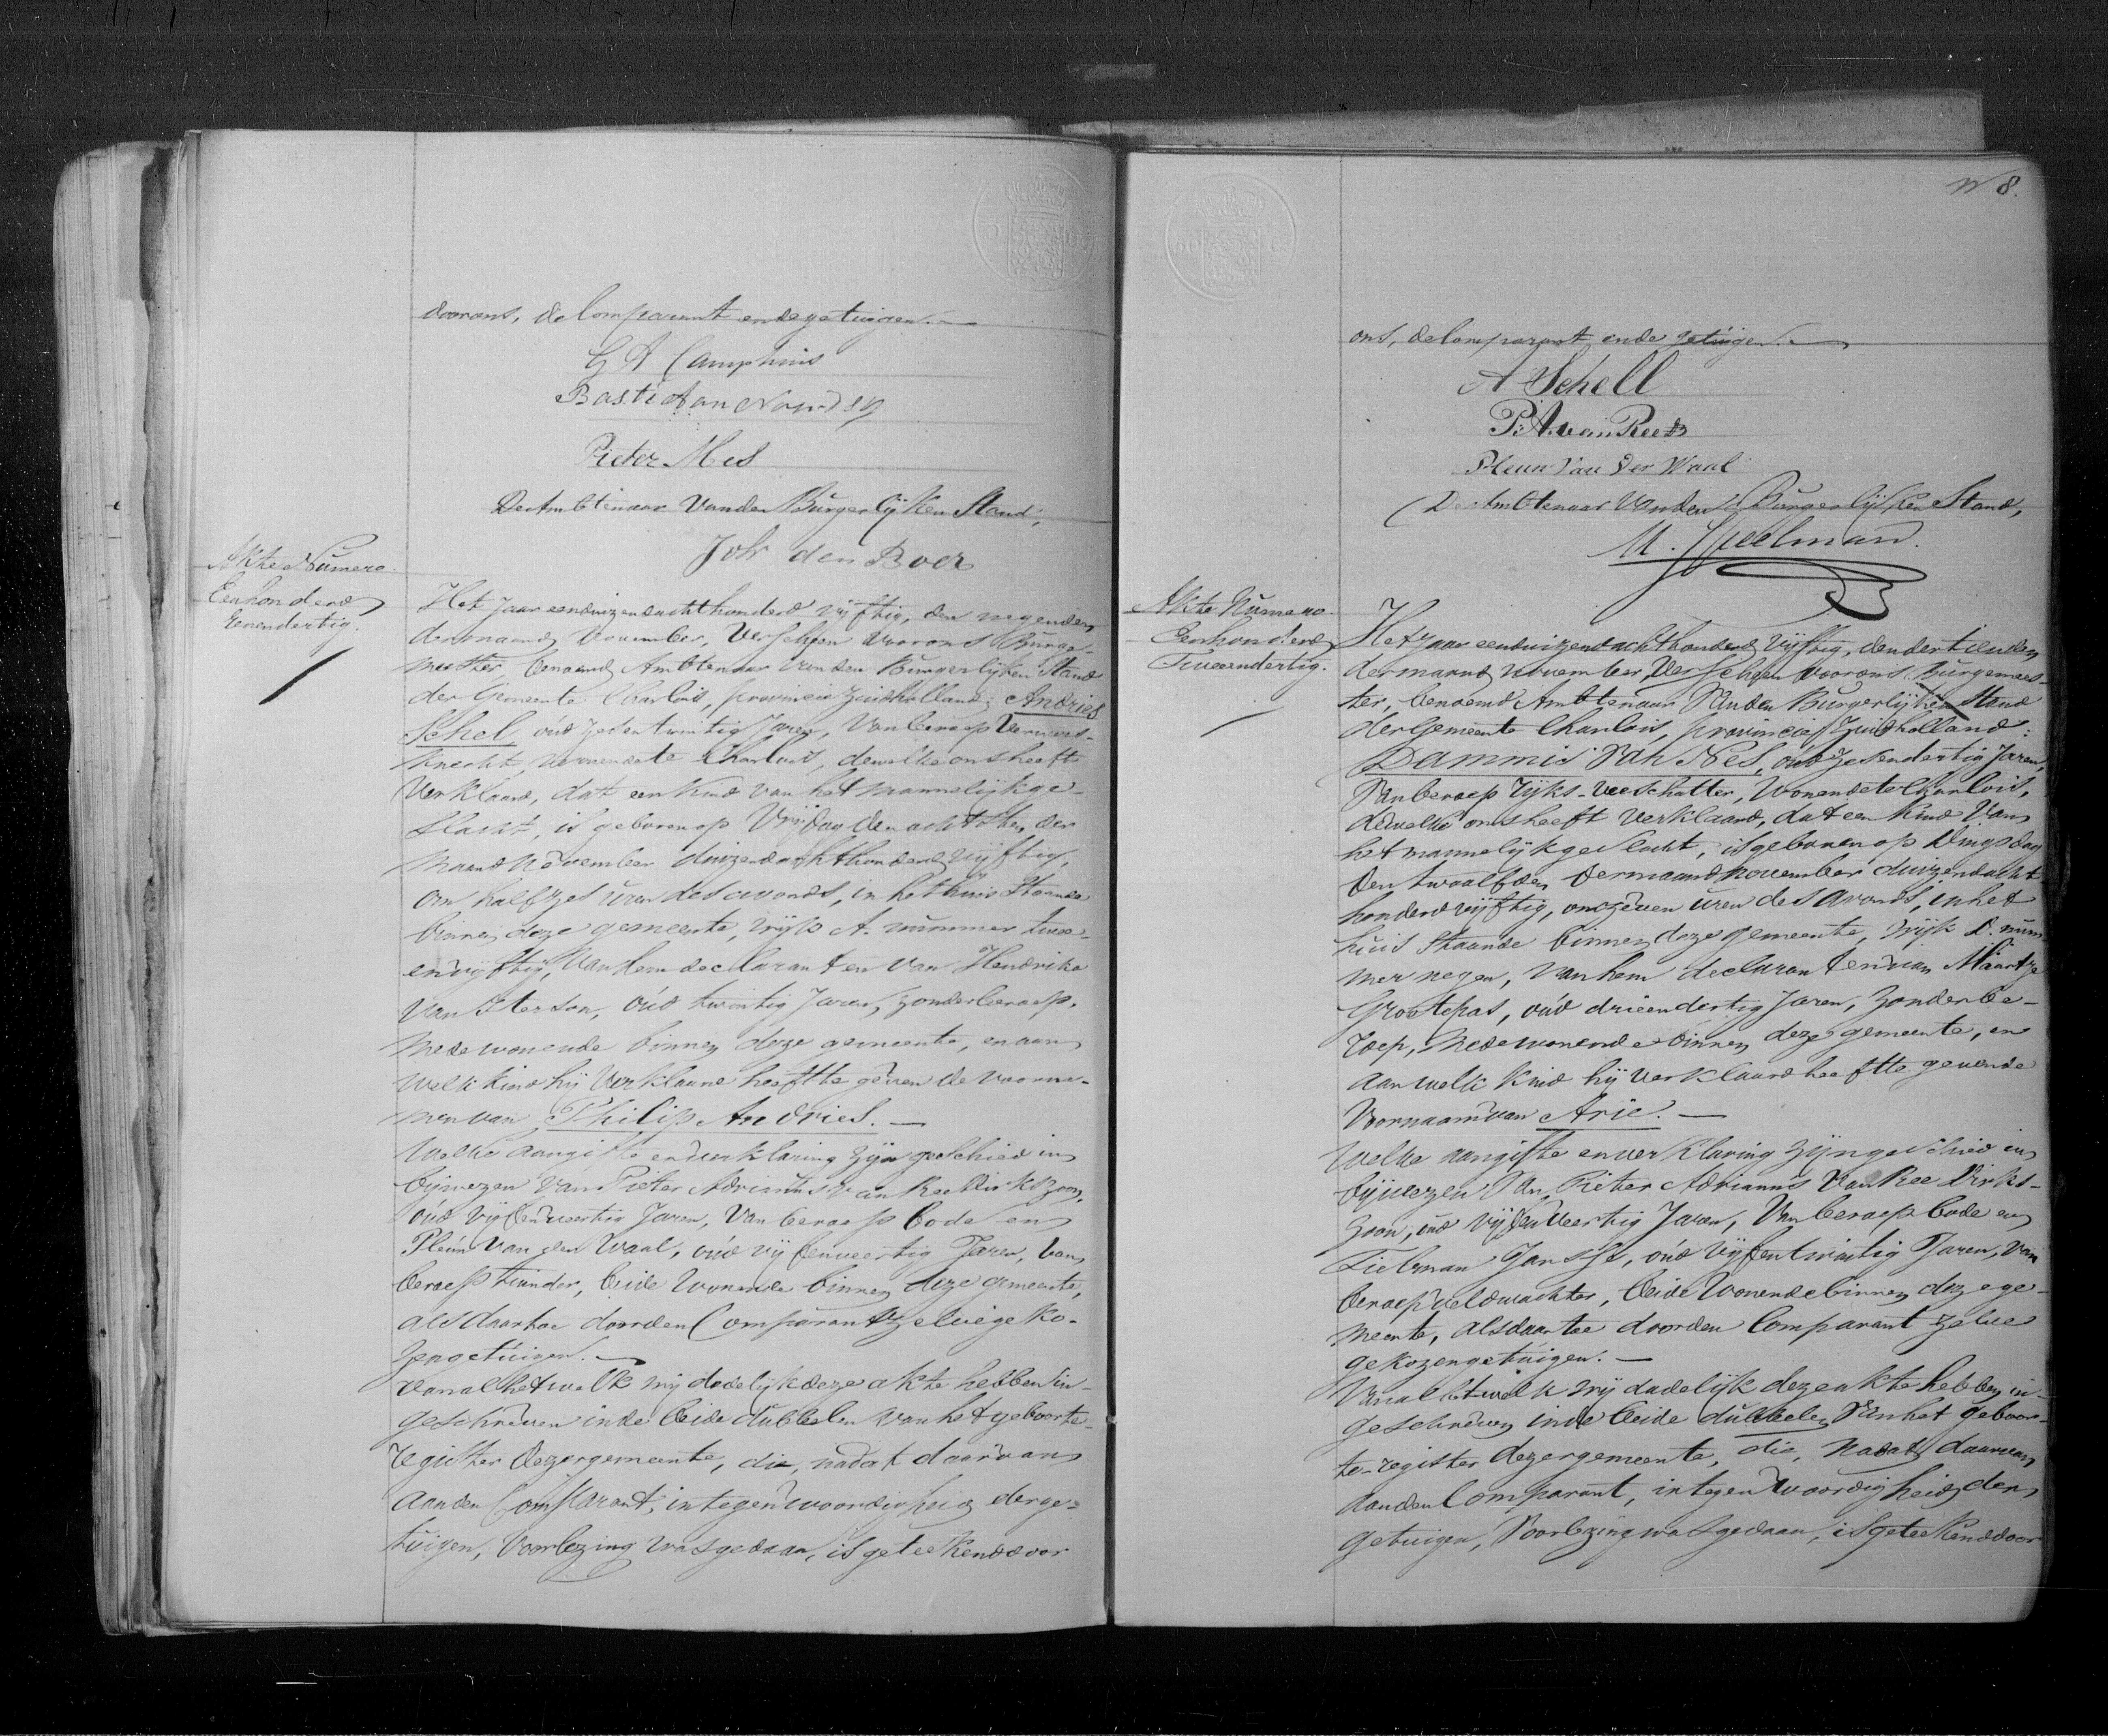 door ons, de Comparant en de getuigen.
G A Camphuis
BastiAan Noordzij
Pieter Mes
De Ambtenaar van den Burgerlijken Stand,
Joh den Boer
Akte Numero
Eenhonderd
Eenendertig.
Het jaar eenduizendachthonderd vijftig, den negenden
der maand November, verscheen voor ons Burge-
meester, benoemd Ambtenaar van den Burgerlijken Stand
der Gemeente Charlois, provincie Zuidholland; Andries
Schel, oud zesentwintig Jaren, van beroep
knecht, wonende te Charlois, dewelke ons heeft
verklaard, dat een kind van het mannelijk ge-
slacht, is geboren op Vrijdag den achtsten der
maand November duizendachthonderd vijftig,
om half zes uren des avonds, in het huis staande
binnen deze gemeente, wijk A. nummer twee-
envijftig, van hem declarant en van Hendrika
van Sterson, oud twintig Jaren, zonder beroep,
mede wonende binnen deze gemeente, en aan
welk kind hij verklaard heeft te geven de voorna-
men van Philip Andries. —
Welke aangifte en verklaring zijn geschied in
bijwezen van Pieter Adrianus van Ree Dirkszoon,
oud vijfenveertig Jaren, van beroep bode en
Pleun van der Waal, oud vijfenveertig Jaren, van
beroep tuinder, beide wonende binnen deze gemeente,
als daartoe door den Comparant zelve geko-
zen getuigen. —
Van al hetwelk wij dadelijk deze akte hebben in-
geschreven in de beide dubbelen van het geboorte-
register dezer gemeente, die, nadat daarvan
aan den Comparant, in tegenwoordigheid der ge-
tuigen, voorlezing was gedaan, is geteekend door
N 8.
ons, de Comparant en de getuigen. —
A Schell
P. A. van Ree Dz
Pleun van der Waal
De Ambtenaar van den Burgerlijken Stand,
M. Speelman.
Akte Numero
Eenhonderd
Tweeendertig.
Het jaar eenduizendachthonderd vijftig, den dertienden
der maand November, verscheen voor ons Burgemees-
ter, benoemd Ambtenaar van den Burgerlijken Stand
der Gemeente Charlois, provincie Zuidholland:
Dammis van Nes, oud zesendertig Jaren,
van beroep Rijks-veeschatter, wonende te Charlois,
dewelke ons heeft verklaard, dat een kind van
het mannelijk geslacht, is geboren op Dingsdag
den twaalfden der maand November duizendacht-
honderd vijftig, om zeven uren des avonds, in het
huis staande binnen deze gemeente, wijk D. num-
mer negen, van hem declarant en van Maartje
Grootepas, oud drieendertig Jaren, zonder be-
roep, mede wonende binnen deze gemeente, en
aan welk kind hij verklaard heeft te geven de
voornaam van Arie. —
Welke aangifte en verklaring zijn geschied in
bijwezen van Pieter Adrianus van Ree Dirks-
zoon, oud vijfenveertig Jaren, van beroep bode en
Tieleman Jansse, oud vijfentwintig Jaren, van
beroep veldwachter, beide wonende binnen deze ge-
meente, als daartoe door den Comparant zelve
gekozen getuigen. —
Van al hetwelk wij dadelijk deze akte hebben in-
geschreven in de beide dubbelen van het geboor-
te-register dezer gemeente, die, nadat daarvan
aan den Comparant, in tegenwoordigheid der
getuigen, voorlezing was gedaan, is geteekend door